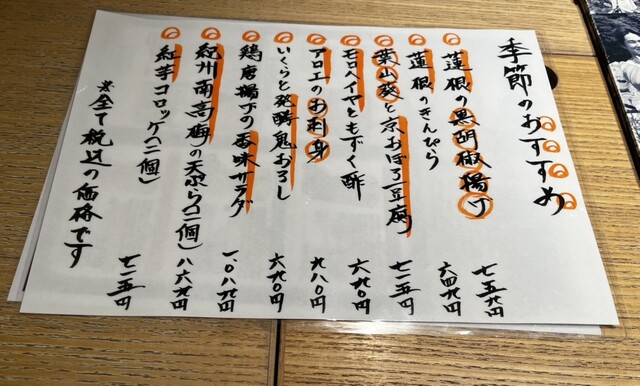 季節のおすすめ
蓮根の黒胡椒揚げ 七五九円
蓮根のきんぴら 六四九円
葉山葵と京おぼろ豆腐 七一五円
モロヘイヤともずく酢 六九〇円
アロエのお刺身 九八〇円
いくらと発酵鬼おろし 六九〇円
鶏唐揚げの香味サラダ 一、〇八九円
紀州南高梅の天ぷら(二個) 八六九円
紅芋コロッケ(二個) 七一五円
※全て税込の価格です